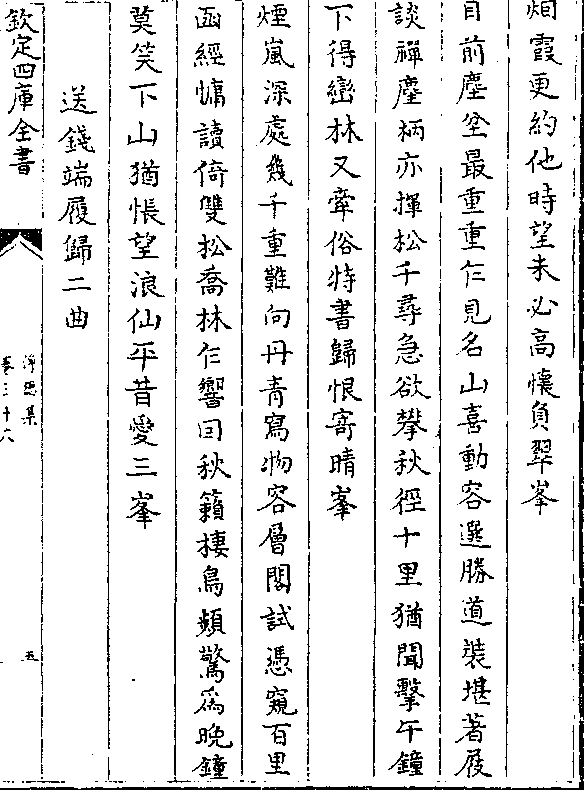 烟霞更約他時望未必高懷負翠峯
目前塵坌最重重乍見名山喜動容選勝道裝堪著屐
談禪麈柄亦揮松千尋急欲攀秋徑十里猶聞擊午鐘
下得巒林又牽俗將書歸恨寄晴峯
煙嵐深處幾千重難向丹青寫物容層閣試憑窺百里
函經慵讀倚雙松喬林乍響回秋籟棲鳥頻驚為晚鐘
莫笑下山猶悵望浪仙平昔愛三峯
送錢端履歸二曲
欽定四庫全書
淨德集
卷三十六
五